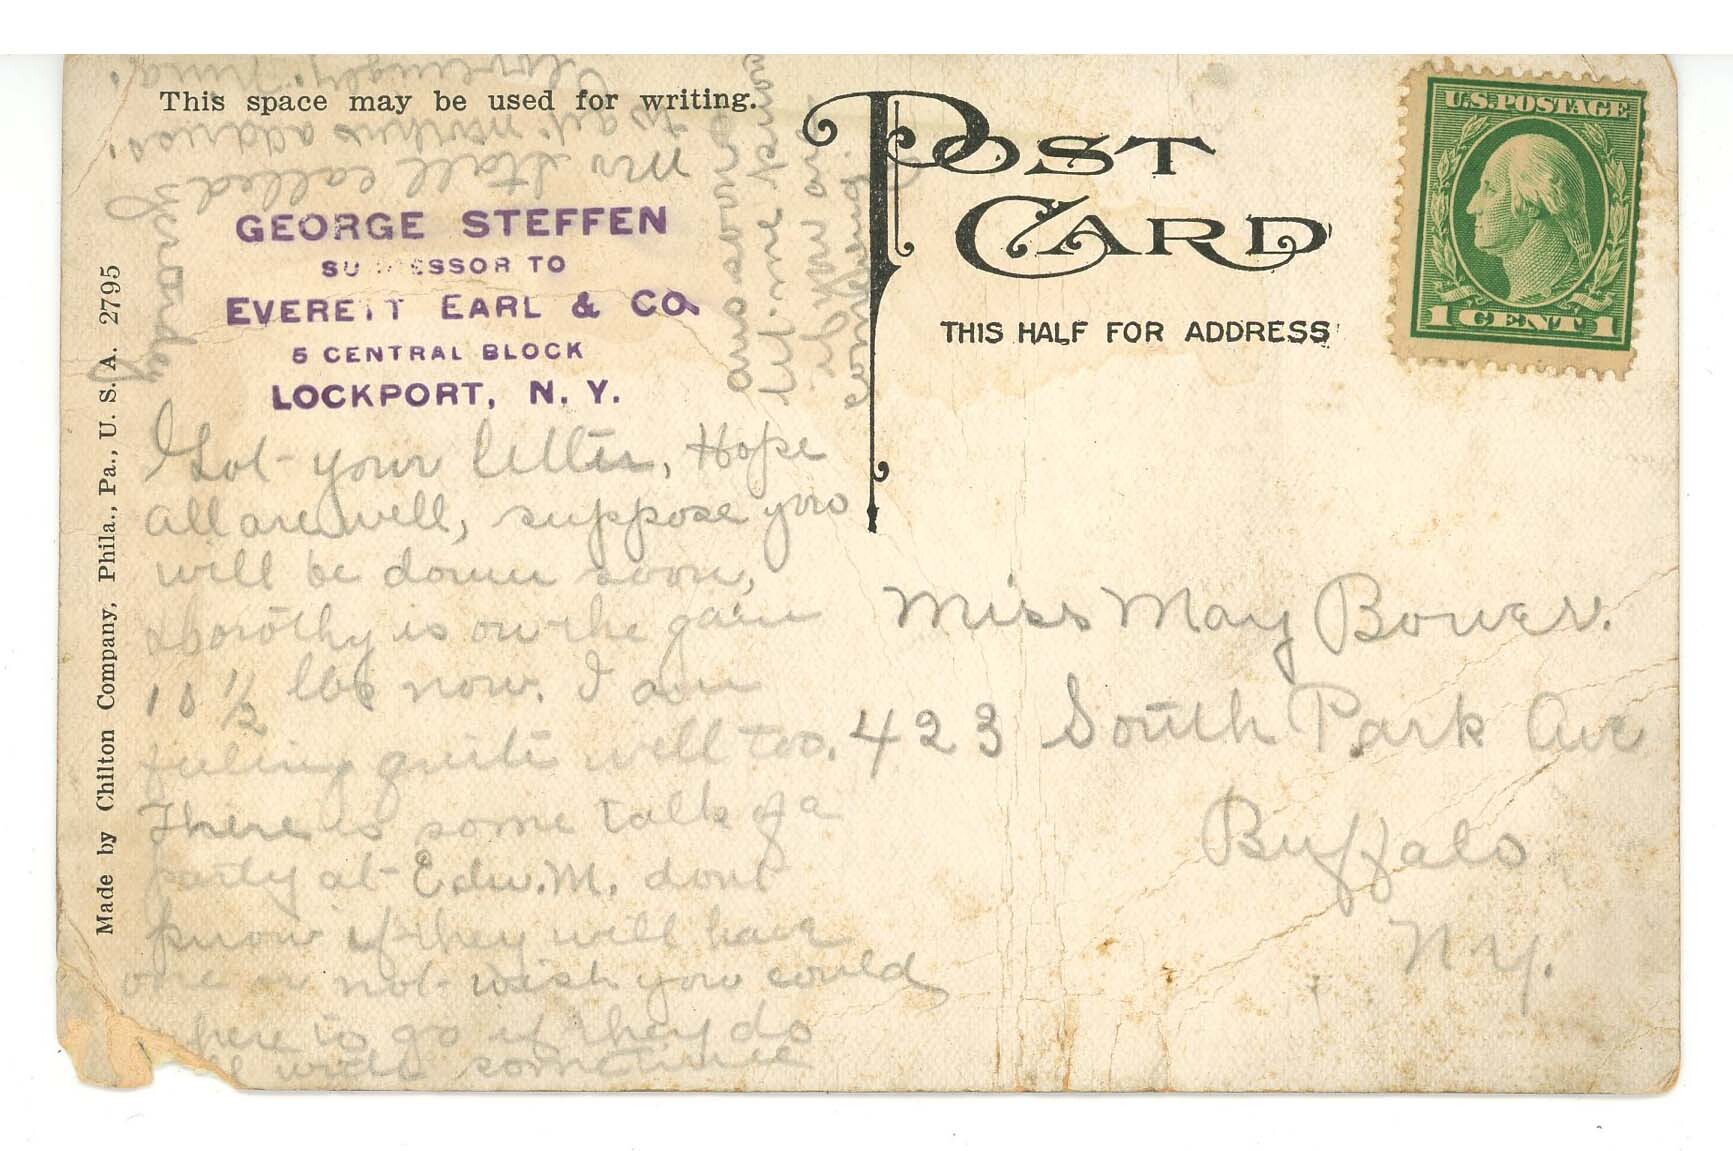 This space may be used for writing.
GEORGE STEFFEN
SUCCESSOR TO
EVERETT EARL & CO.
5 CENTRAL BLOCK
LOCKPORT, N. Y.
Made by Chilton Company, Phila., Pa., U. S. A. 2795
POST CARD
THIS HALF FOR ADDRESS
U.S.POSTAGE
1 CENT 1
Got your letter, Hope
all are well, suppose you
will be down soon,
Dorothy is on the gain
10 1/2 lbs now. I am
feeling quite well too.
There is some talk of a
party at Edw. M. dont
know if they will have
one or not wish you could
here to go if they do
will write sometime
ans soon
let me know
if you are
coming.
Mr Stall called yesterday
to get address.
Lovingly Nina.
Miss May Bower.
423 South Park Ave
Buffalo
N.Y.